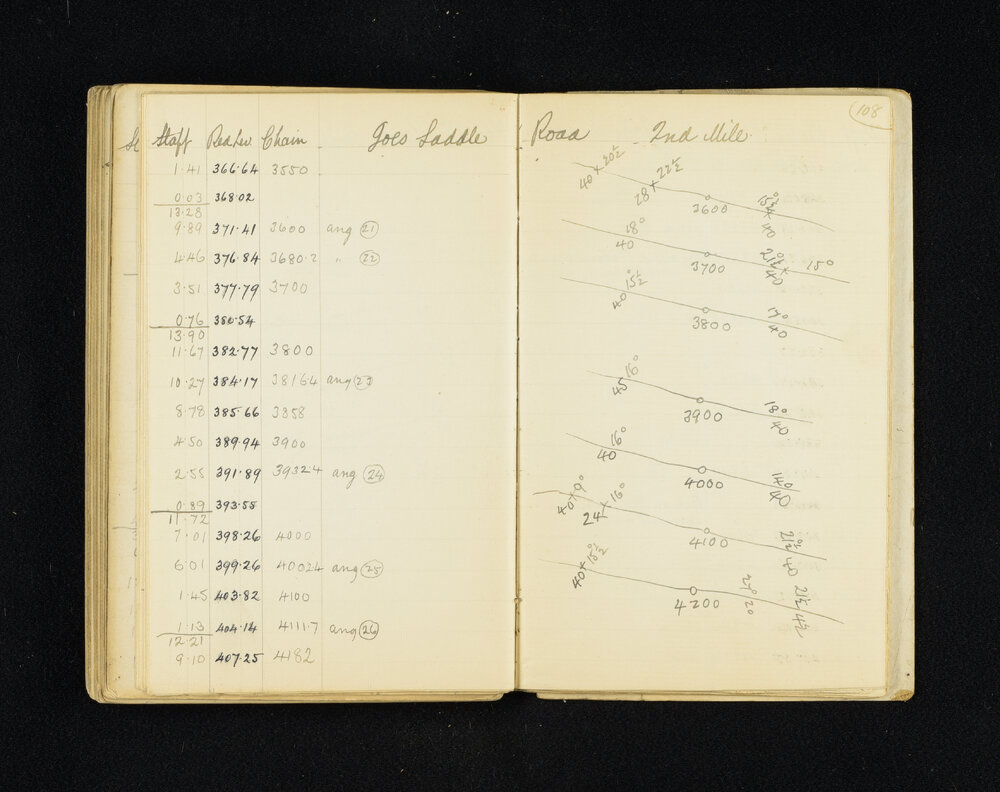 Staff Red Lev. Chain Goes Saddle Road 2nd Mile 108
1.41 366.64 3550
0.03 368.02
13.28
9.89 371.41 3600 ang 21
4.46 376.84 3680.2 " 22
3.51 377.79 3700
0.76 380.54
13.90
11.67 382.77 3800
10.27 384.17 3816.4 ang 23
8.78 385.66 3858
4.50 389.94 3900
2.55 391.89 3932.4 ang 24
0.89 393.55
11.72
7.01 398.26 4000
6.01 399.26 4002.4 ang 25
1.45 403.82 4100
1.13 404.14 4111.7 ang 26
12.21
9.10 407.25 4182
40 x 20½ 28 x 22½ 3600 40
18° 40 3700 21½° x 40 15°
40 15½° 3800 17° 40
45 16° 3900 18° 40
16° 40 4000 14° 40
40 x 9° 24 x 16° 4100 21½° 40
40 x 15½° 4200 27° 20 21½ 42